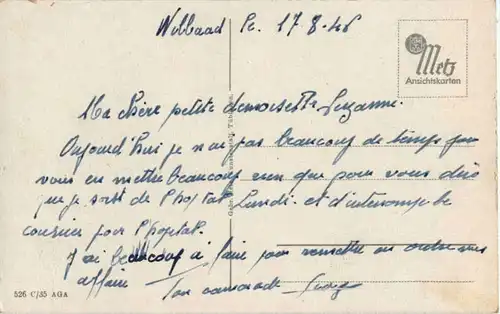 Wilbaad Le. 17-8-46
Metz
Ansichtskarten
Ma chère petite demoiselle Suzanne.
Aujourd'hui je n'ai pas beaucoup de temps pour
vous en mettre beaucoup rien que pour vous dire
que je sorts de l'hopital Lundi. et d'interrompre le
courrier pour l'hopital.
J'ai beaucoup à faire pour remettre en ordre mes
affaire
Ton camarade
526 C/35 AGA